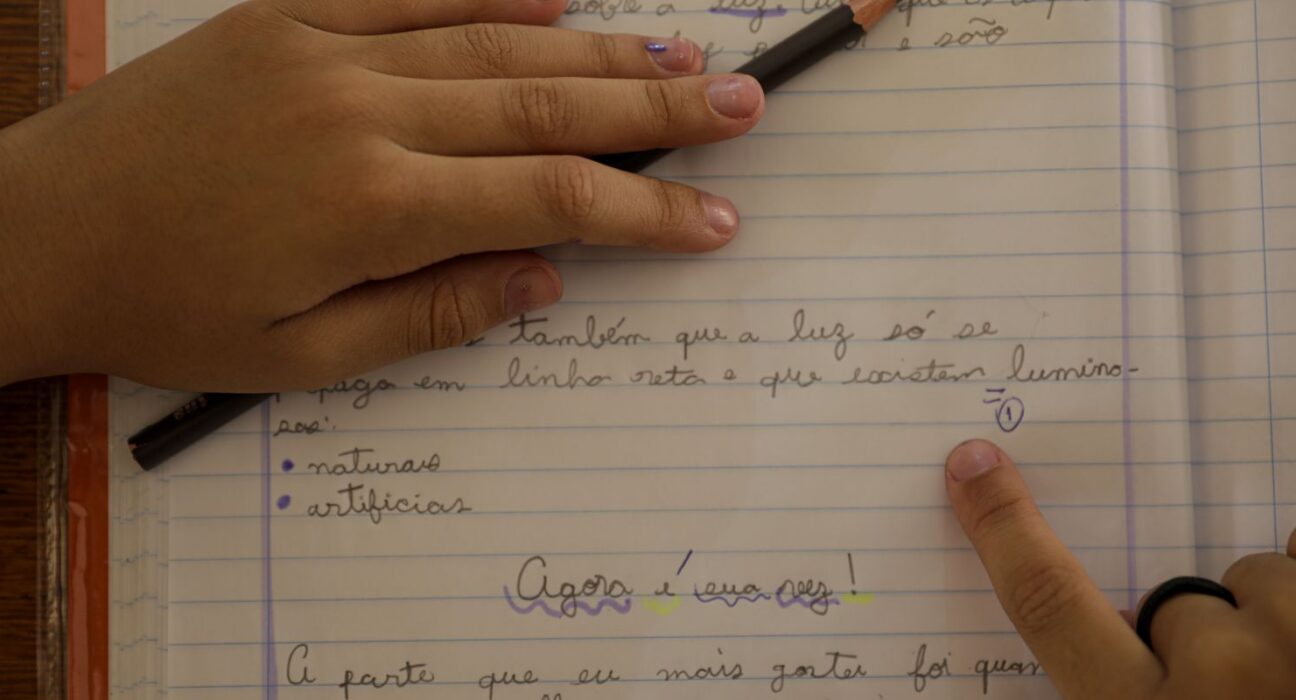 sobre a luz.
e são
também que a luz só se
em linha reta e que existem lumino-
sas:
1
• naturais
• artificias
Agora é sua vez!
A parte que eu mais gostei foi quan